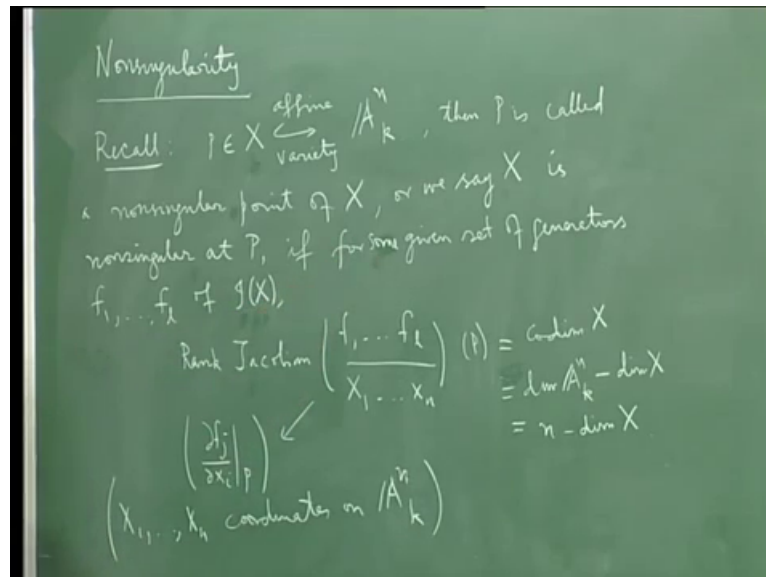 Nonsingularity
Recall: P ∈ X ↪ affine variety 𝔸ⁿₖ, then P is called
a nonsingular point of X, or we say X is
nonsingular at P, if for some given set of generators
f₁, ..., fₗ of 𝓘(X),
Rank Jacobian (f₁ ... fₗ / X₁ ... Xₙ) (P) = codim X
= dim 𝔸ⁿₖ - dim X
= n - dim X
(∂fⱼ/∂xᵢ |ₚ)
(X₁, ..., Xₙ coordinates on 𝔸ⁿₖ)